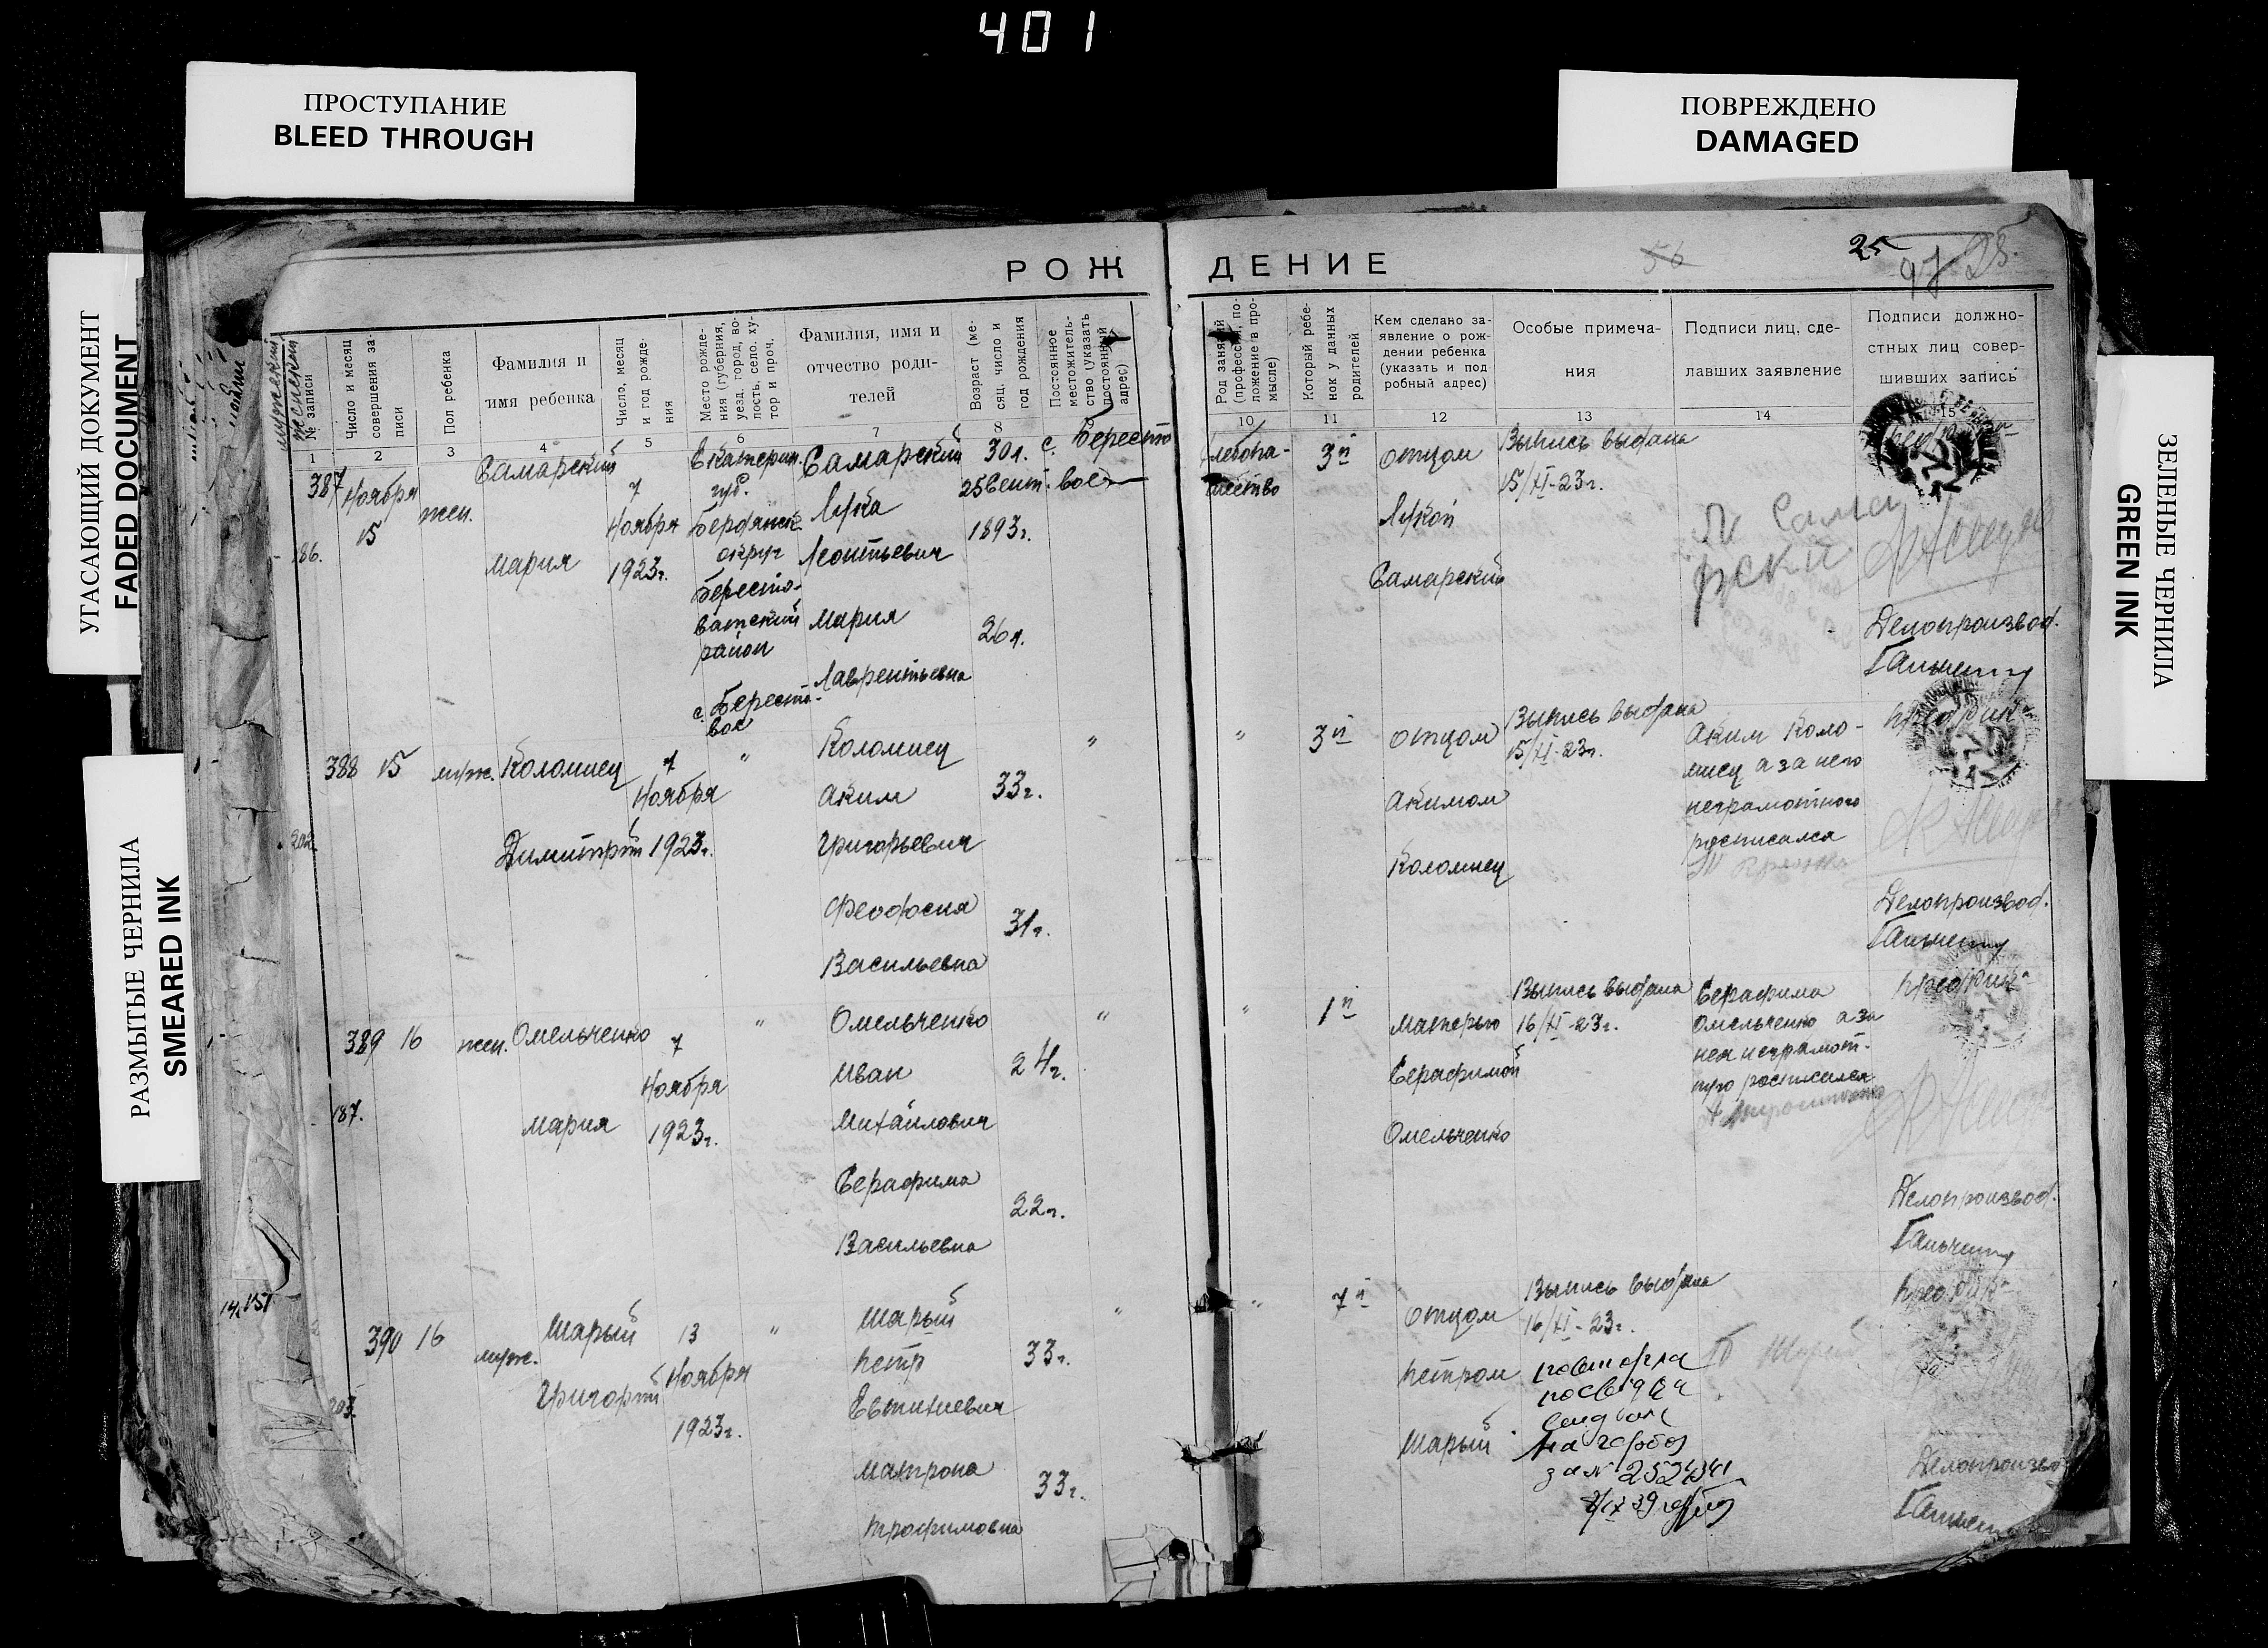 401
ПРОСТУПАНИЕ
BLEED THROUGH
ПОВРЕЖДЕНО
DAMAGED
УГАСАЮЩИЙ ДОКУМЕНТ
FADED DOCUMENT
РАЗМЫТЫЕ ЧЕРНИЛА
SMEARED INK
ЗЕЛЕНЫЕ ЧЕРНИЛА
GREEN INK
РОЖ
ДЕНИЕ
56
25
97 25.
мужский
женский
№ записи
Число и месяц совершения записи
Пол ребенка
Фамилия и
имя ребенка
Число, месяц
и год рождения
Место рождения (губерния, уезд, город, волость, село, хутор и проч.
Фамилия, имя и
отчество роди-
телей
Возраст (месяц, число и год рождения
Постоянное местожительство (указать постоянный адрес)
Род занятий (профессия, положение в промысле)
Который ребенок у данных родителей
Кем сделано за-
явление о рож-
дении ребенка
(указать и под
робный адрес)
Особые примеча-
ния
Подписи лиц, сде-
лавших заявление
Подписи должно-
стных лиц совер-
шивших запись
1 2 3 4 5 6 7 8
10 11 12 13 14 15
387
186.
Ноября
15
жен.
Самарский
Мария
7
Ноября
1923г.
Екатерин.
губ.
Бердянск.
округ
Бересто-
ватский
район
с. Бересто-
вое
Самарский
Лука
Леонтьевич
Мария
Лаврентьевна
30л.
25 Сент.
1893г.
26л.
с. Бересто
вое
Хлебопа-
шество
3й
Отцом
Лукой
Самарский
Выпись выдана
15/XI-23г.
Л Сама
рский
Делопроизвод.
Ганженку
388 15 муж.
202.
Коломиец
Димитрий
7
Ноября
1923г.
"
Коломиец
Аким
Григорьевич
Феодосия
Васильевна
33г.
31г.
"
"
3й
Отцом
Акимом
Коломиец
Выпись выдана
15/XI-23г.
Аким Коло-
миец а за него
неграмотного
росписался
Делопроизвод.
389 16 жен.
187.
Омельченко
Мария
7
Ноября
1923г.
"
Омельченко
Иван
Михайлович
Серафима
Васильевна
24г.
22г.
"
"
1й
Матерью
Серафимой
Омельченко
Выпись выдана
16/XI-23г.
Серафима
Омельченко а за
нея неграмот-
ную росписался
Делопроизвод.
390 16
муж.
203.
Шарый
Григорий
13
Ноября
1923г.
"
Шарый
Петр
Евтихиевич
Матрона
Трофимовна
33г.
33г.
"
"
7й
Отцом
Петром
Шарый
Выпись выдана
16/XI-23г.
П Шарий
Делопроизво